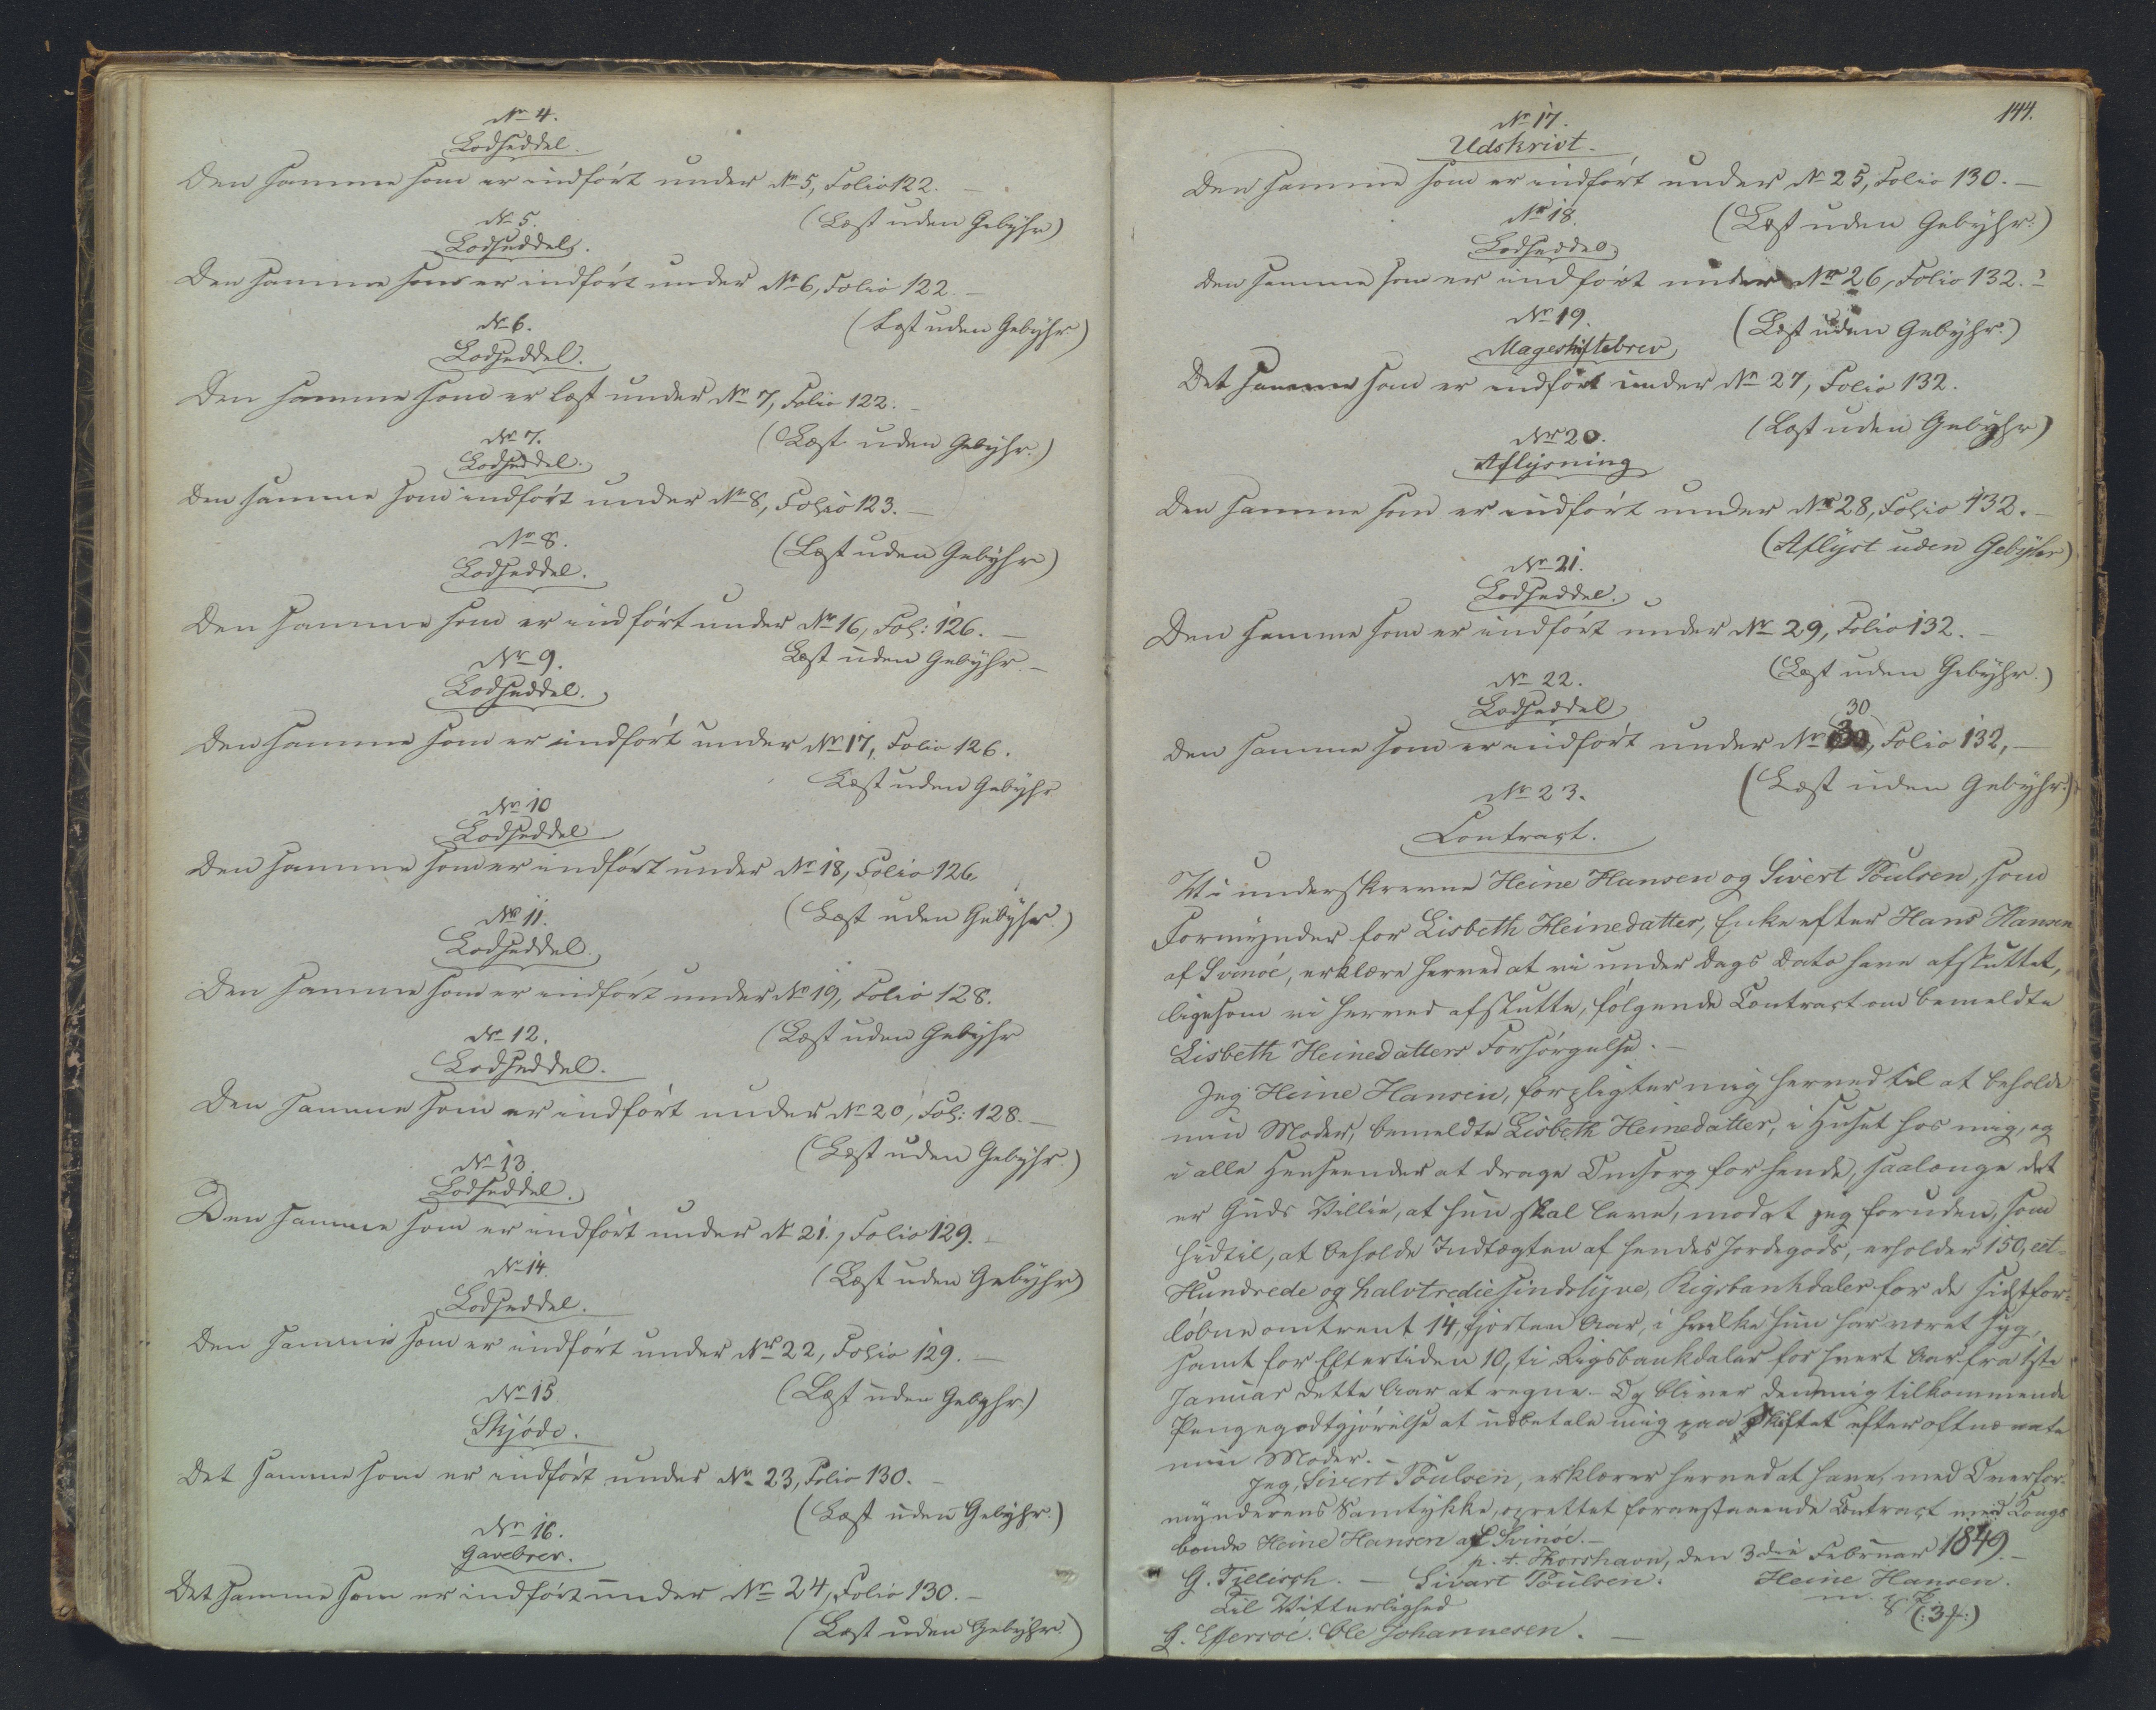 No 4.
Lodseddel.
Den samme som er indført under No 5, Folio 122. —
(Læst uden Gebyhr)
No 5.
Lodseddel.
Den samme som er indført under No 6, Folio 122. —
(Læst uden Gebyhr)
No 6.
Lodseddel.
Den samme som er læst under No 7, Folio 122. —
(Læst uden Gebyhr.)
No 7.
Lodseddel.
Den samme som indført under No 8, Folio 123. —
(Læst uden Gebyhr)
No 8.
Lodseddel.
Den samme som er indført under No 16, Fol: 126. —
Læst uden Gebyhr. —
No 9.
Lodseddel.
Den samme som er indført under No 17, Folio 126.
Læst uden Gebyhr
No 10
Lodseddel
Den samme som er indført under No 18, Folio 126
(Læst uden Gebyhr.)
No 11.
Lodseddel.
Den samme som er indført under No 19, Folio 128.
(Læst uden Gebyhr
No 12.
Lodseddel.
Den samme som er indført under No 20, Fol: 128. —
(Læst uden Gebyhr.)
No 13.
Lodseddel.
Den samme som er indført under No 21., Folio 129. —
(Læst uden Gebyhr)
No 14.
Lodseddel.
Den samme som er indført under No 22, Folio 129. —
(Læst uden Gebyhr)
No 15
Skjøde.
Det samme som er indført under No 23, Folio 130. —
(Læst uden Gebyhr.)
No 16.
Gavebrev.
Det samme som er indført under No 24, Folio 130. —
(Læst uden Gebyhr.)
144.
No 17.
Udskrivt.
Den samme som er indført under No 25, Folio 130. —
(Læst uden Gebyhr.)
No 18.
Lodseddel
Den samme som er indført under No 26, Folio 132. —
(Læst uden Gebyhr.)
No 19.
Mageskiftebrev
Det samme som er indført under No 27, Folio 132.
(Læst uden Gebyhr)
No 20.
Aflysning
Den samme som er indført under No 28, Folio 132. —
(Aflyst uden Gebyhr)
No 21.
Lodseddel.
Den samme som er indført under No 29, Folio 132. —
(Læst uden Gebyhr.)
No 22.
Lodseddel
30
Den samme som er indført under No 30, Folio 132, —
(Læst uden Gebyhr.)
No 23.
Contract.
Vi underskrevne Heine Hansen og Sivert Poulsen, som
Formynder for Lisbeth Heinedatter, Enke efter Hans Hansen
af Svinöe, erklære herved at vi under Dags Dato have afsluttet,
ligesom vi herved afslutte, følgende Contract om bemeldte
Lisbeth Heinedatters Forsørgelse. —
Jeg Heine Hansen, forpligter mig herved til at beholde
min Moder, bemeldte Lisbeth Heinedatter, i Huset hos mig, og
i alle Henseender at drage Omsorg for hende, saalænge det
er Guds Villie, at hun skal leve, mod at jeg foruden, som
hidtil, at beholde Indtægten af hendes Jordegods, erholder 150, eet
Hundrede og halvtrediesindstyve, Rigsbankdaler for de sidstfor-
løbne omtrent 14, fjorten Aar, i hvilke hun har været syg,
samt for Eftertiden 10, ti Rigsbankdaler for hvert Aar fra 1ste
Januar dette Aar at regne. — Og bliver den mig tilkommende
Pengegodtgjørelse at udbetale mig paa Skiftet efter oftnævnte
min Moder. —
Jeg, Sivert Poulsen, erklærer herved at have, med Overfor-
mynderens Samtykke, oprettet foranstaaende Contract med Kongs
bonde Heine Hansen af Svinöe. —
p. t. Thorshavn, den 3die Februar 1849. —
G. Tillisch. — Sivert Poulsen. Heine Hansen.
Til Vitterlighed
G. Effersöe. Ole Johannesen. —